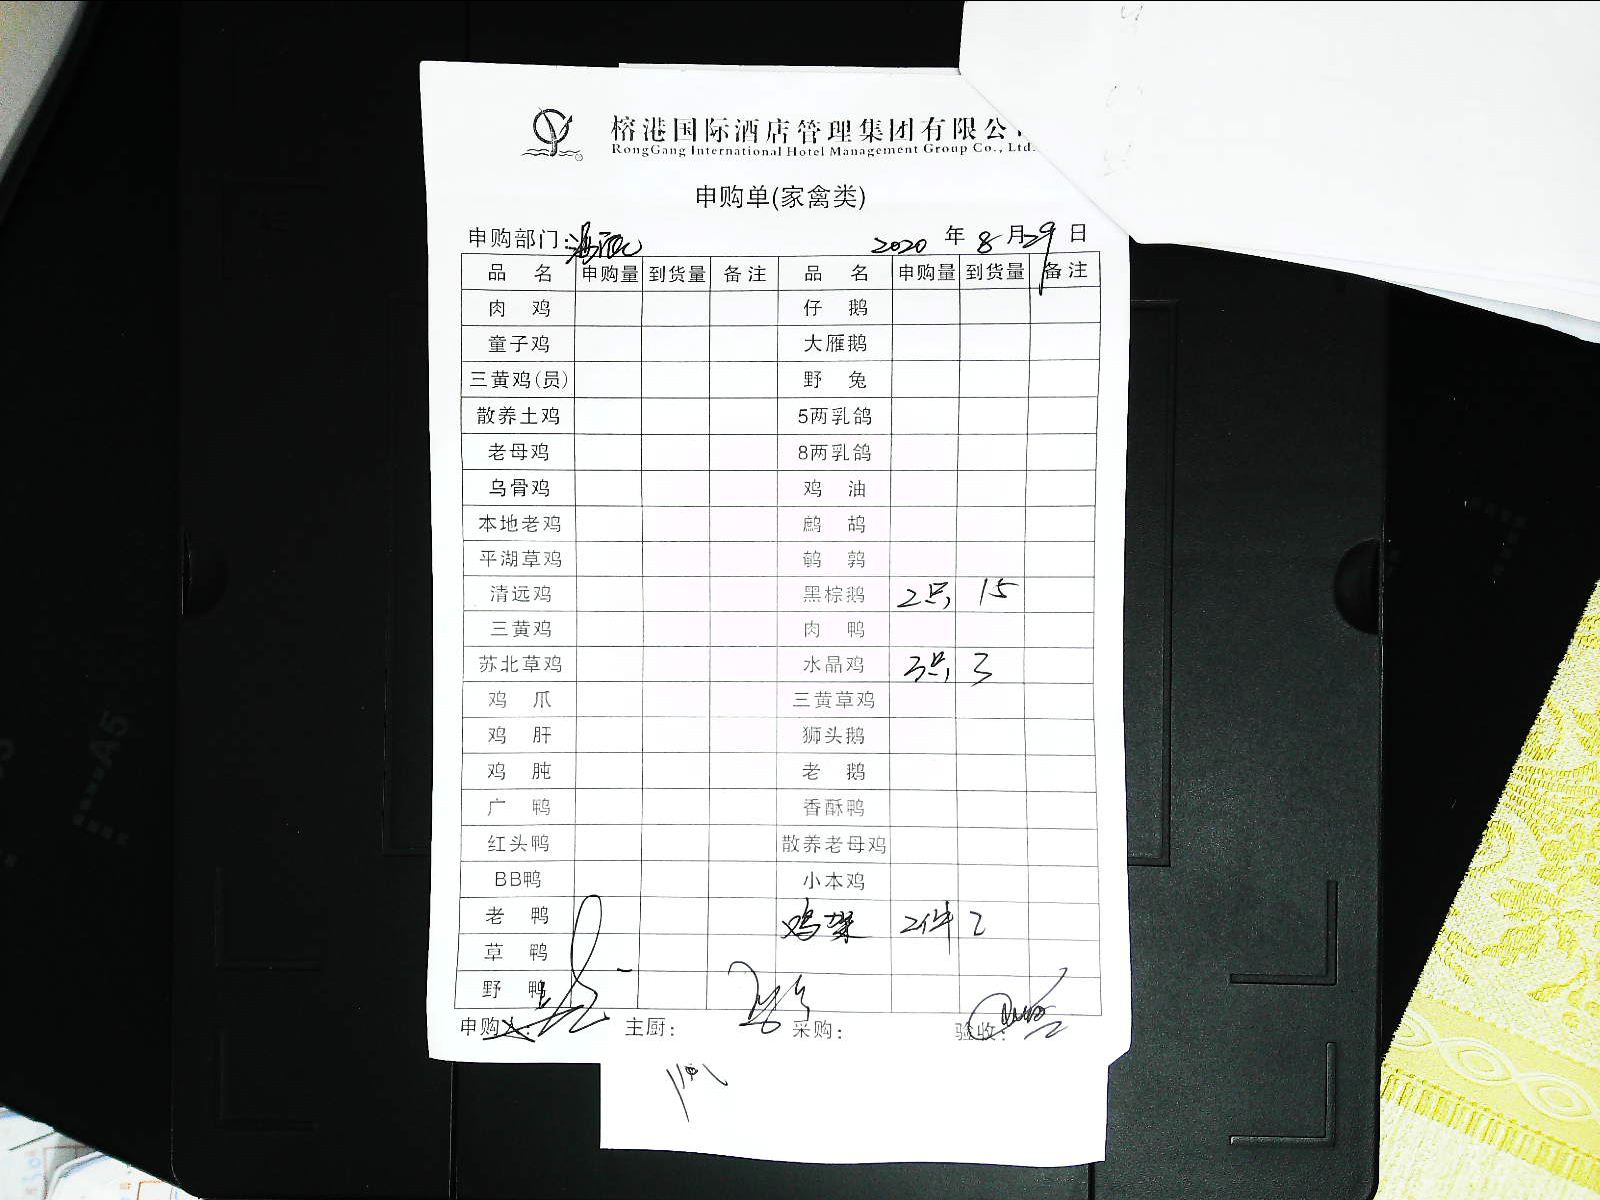 榕港国际酒店管理集团有限公
RongGang International Hotel Management Group Co., Ltd.
申购单(家禽类)
申购部门: 2020 年 8 月 29 日
品 名 申购量 到货量 备注 品 名 申购量 到货量 备注
肉 鸡 仔 鹅
童子鸡 大雁鹅
三黄鸡(员) 野 兔
散养土鸡 5两乳鸽
老母鸡 8两乳鸽
乌骨鸡 鸡 油
本地老鸡 鹧 鸪
平湖草鸡 鹌 鹑
清远鸡 黑棕鹅 2只 15
三黄鸡 肉 鸭
苏北草鸡 水晶鸡 3只 3
鸡 爪 三黄草鸡
鸡 肝 狮头鹅
鸡 肫 老 鹅
广 鸭 香酥鸭
红头鸭 散养老母鸡
BB鸭 小本鸡
老 鸭 鸡架 2件 2
草 鸭
野 鸭
申购人: 主厨: 采购: 验收: